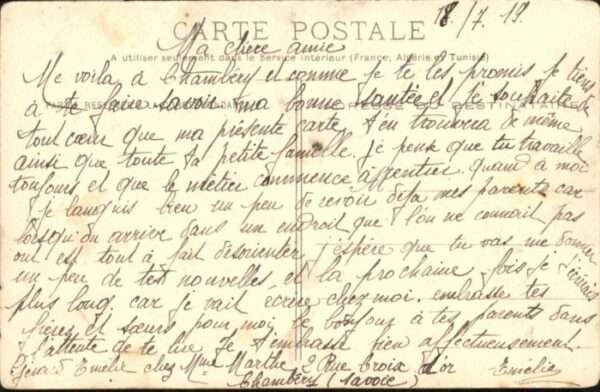 18/7.19.
CARTE POSTALE
Ma chère amie
A utiliser seulement dans le Service intérieur (France, Algérie et Tunisie)
Me voilà à Chambéry et comme je te l'es promis je tiens
à te faire savoir ma bonne santée et te souhaite de
tout cœur que ma présente carte t'en trouvera de même
ainsi que toute ta petite famille. je pense que tu travaille
toujours et que le métier commence à rentrer. quand à moi
je languis bien un peu de revoir déja mes parents car
lorsqu'on arrive dans un endroit que l'on ne connait pas
on est tout à fait désorienter. j'espère que tu vas me donner
un peu de tes nouvelles, et la prochaine fois je t'écrirais
plus long. car je vait écrire chez moi. embrasse tes
frères et sœurs pour moi, le bonjour à tes parents dans
l'attente de te lire je t'embrasse bien affectueusement.
Emélie chez Mme Marthe 2 Rue Croix d'or Emélie
Chambéry (Savoie)